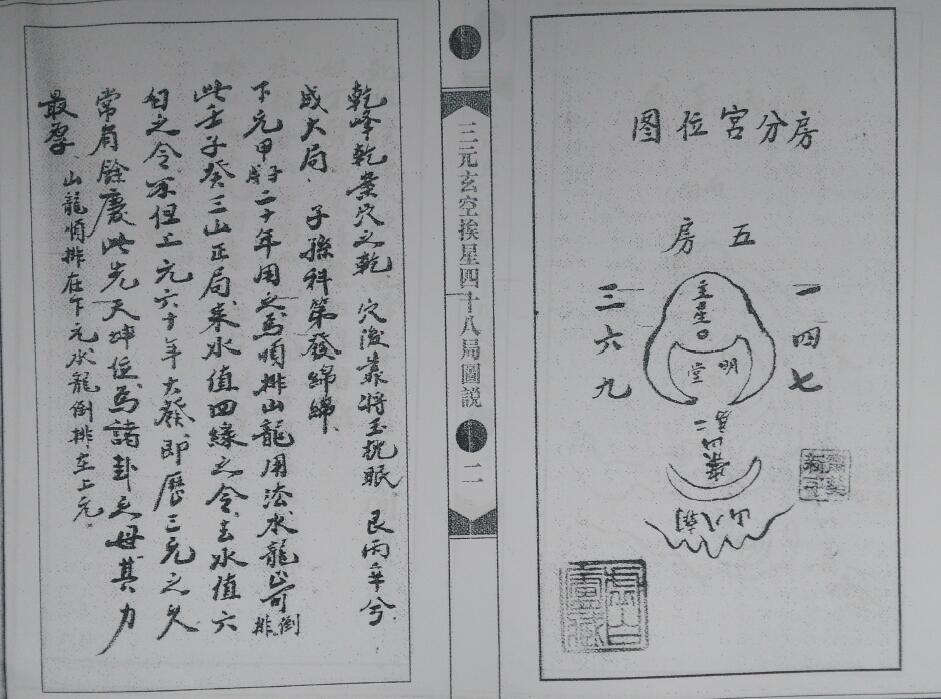 房分宮位图
五房
一四七
三六九
主星
明堂
案
三元玄空挨星四十八局圖説
二
乾峰乾巒穴之乾 穴後靠將玉枕眠 艮丙辛兮
成大局 子孫科第發綿綿
下元甲子戌二十年用之為順排山龍用法水龍當可倒排
此壬子癸三山正局来水值四綠之令去水值六
白之令不但上元六十年大發即歷三元之久
常有餘慶此先天坤位為諸卦之母其力
最厚 山龍順排在下元水龍倒排在上元